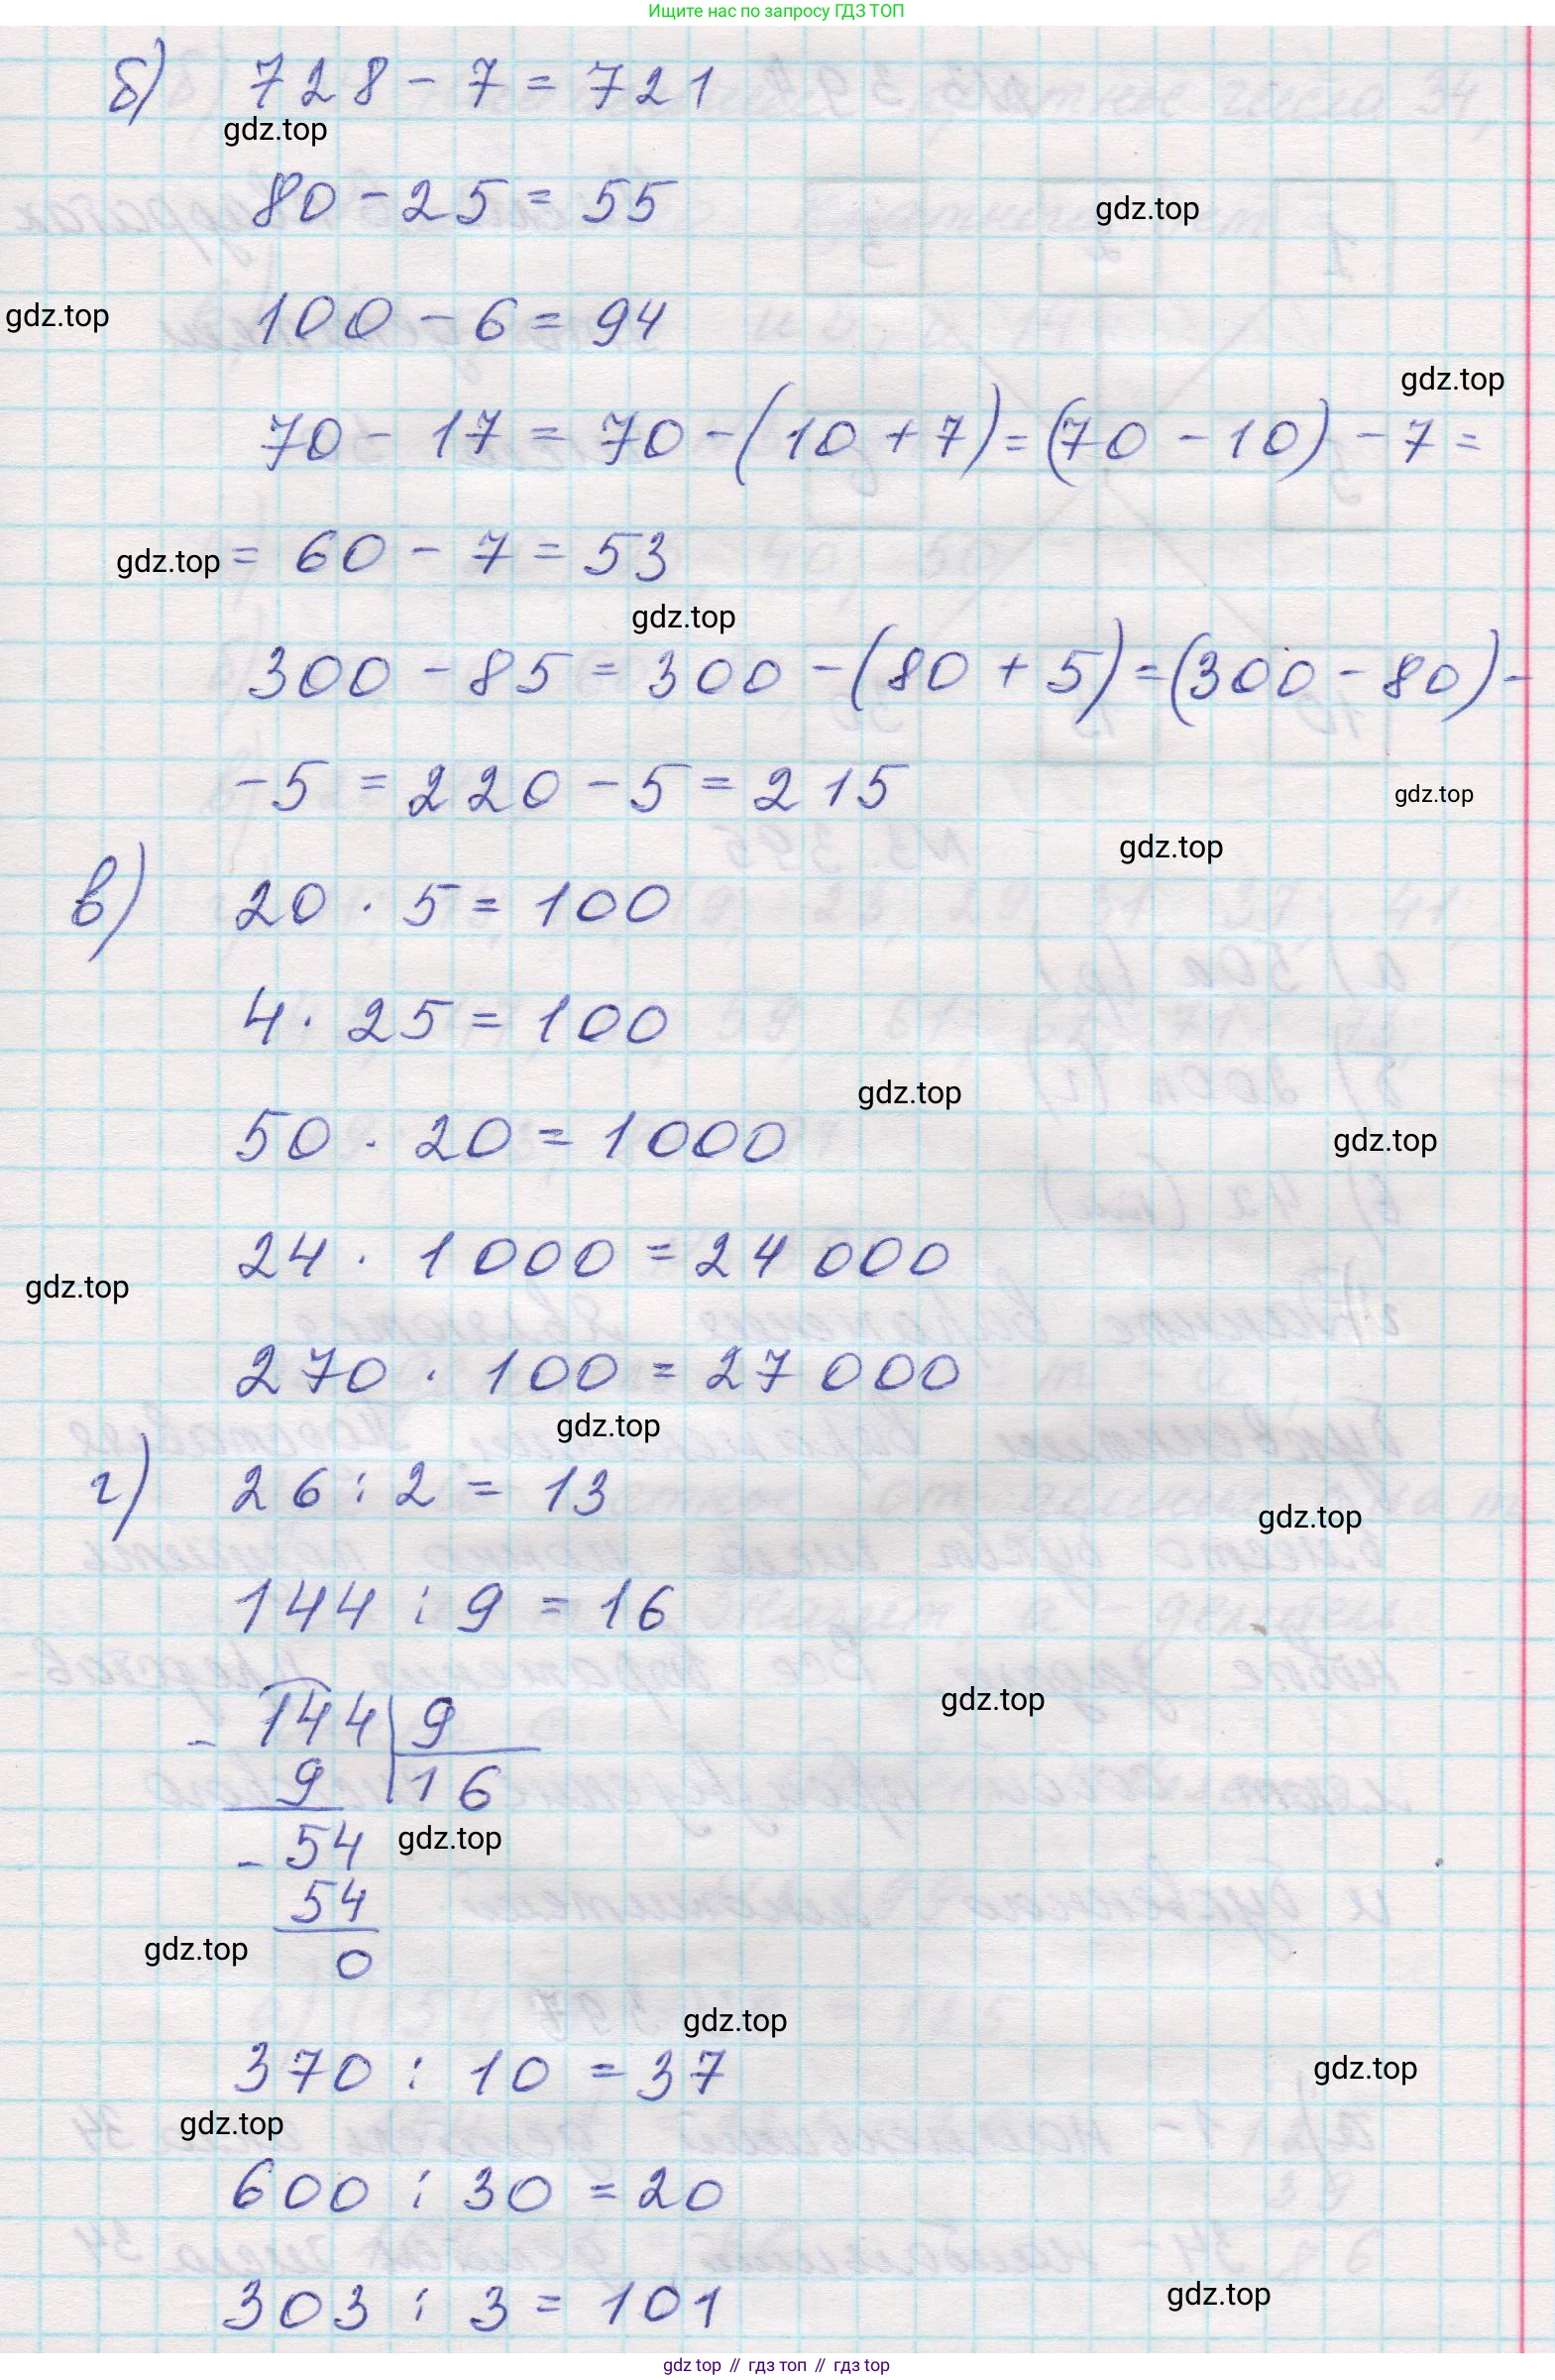 Ищите нас по запросу ГДЗ ТОП
б) 728 - 7 = 721
gdz.top
80 - 25 = 55
gdz.top
gdz.top
100 - 6 = 94
gdz.top
70 - 17 = 70 - (10 + 7) = (70 - 10) - 7 =
gdz.top
= 60 - 7 = 53
gdz.top
300 - 85 = 300 - (80 + 5) = (300 - 80) -
- 5 = 220 - 5 = 215
gdz.top
gdz.top
в) 20 · 5 = 100
4 · 25 = 100
gdz.top
50 · 20 = 1000
gdz.top
24 · 1000 = 24 000
gdz.top
270 · 100 = 27 000
gdz.top
г) 26 : 2 = 13
gdz.top
144 : 9 = 16
gdz.top
- 144 | 9
9 | 16
gdz.top
- 54
54
gdz.top
0
gdz.top
370 : 10 = 37
gdz.top
gdz.top
600 : 30 = 20
303 : 3 = 101
gdz.top
gdz top // гдз топ // гдз top